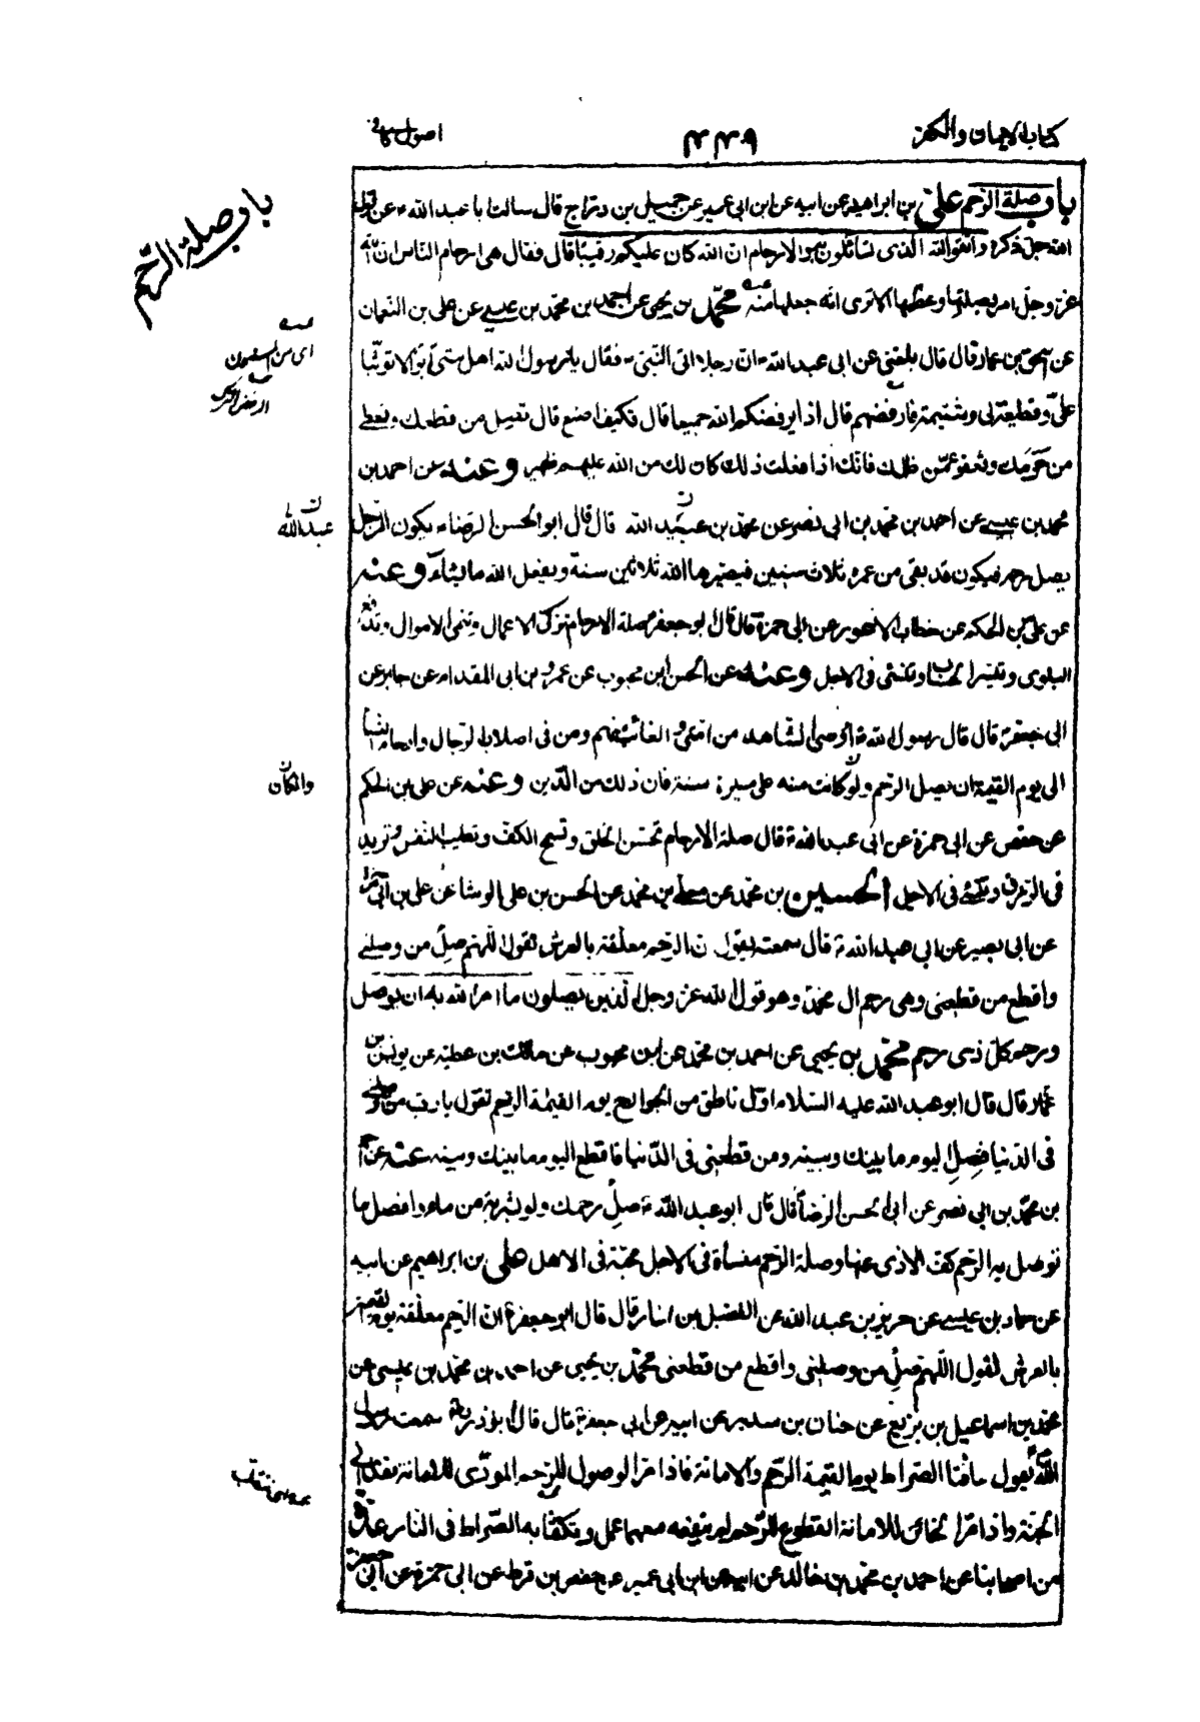 كتاب الايمان والكفر
٤٤٩
اصول كافى
باب صلة الرحم على بن ابراهيم عن ابيه عن ابن ابى عمير عن جميل بن دراج قال سالت ابا عبد الله ء عن قول
الله جل ذكره واتقوا الله الذى تسائلون به والارحام ان الله كان عليكم رقيبا قال فقال هى ارحام الناس ان الله
عز وجل امر بصلتها وعظمها الا ترى انه جعلها منه محمد بن يحيى عن احمد بن محمد بن عيسى عن على بن النعمان
عن اسحق بن عمار قال قال بلغنى عن ابى عبد الله ء ان رجلا اتى النبى ء فقال يا رسول الله اهل بيتى ابوا الا توثبا
على وقطيعة لى وشتيمة فارفضهم قال اذا يرفضكم الله جميعا قال فكيف اصنع قال تصل من قطعك وتعطى
من حرمك وتعفو عمن ظلمك فانك اذا فعلت ذلك كان لك من الله عليهم ظهير وعنه عن احمد بن
محمد بن عيسى عن احمد بن محمد بن ابى نصر عن محمد بن عبيد الله قال قال ابو الحسن الرضاء يكون الرجل
يصل رحمه فيكون قد بقى من عمره ثلاث سنين فيصيرها الله ثلاثين سنة ويفعل الله ما يشاء وعنه
عن على بن الحكم عن خطاب الاعور عن ابى حمزة قال قال ابو جعفر صلة الارحام تزكى الاعمال وتنمى الاموال وتدفع
البلوى وتيسر الحساب وتنسئ فى الاجل وعنه عن الحسن بن محبوب عن عمرو بن ابى المقدام عن جابر عن
ابى جعفر ء قال قال رسول الله ء اوصى الشاهد من امتى والغائب منهم ومن فى اصلاب الرجال وارحام النساء
الى يوم القيمة ان يصل الرحم ولو كانت منه على مسيرة سنة فان ذلك من الدين وعنه عن على بن الحكم
عن حفص عن ابى حمزة عن ابى عبد الله ء قال صلة الارحام تحسن الخلق وتسمح الكف وتطيب النفس وتزيد
فى الرزق وتنسئ فى الاجل الحسين بن محمد عن معلى بن محمد عن الحسن بن على الوشا عن على بن ابى حمزة
عن ابى بصير عن ابى عبد الله ء قال سمعته يقول ان الرحم معلقة بالعرش تقول اللهم صل من وصلنى
واقطع من قطعنى وهى رحم ال محمد وهو قول الله عز وجل الذين يصلون ما امر الله به ان يوصل
ورحم كل ذى رحم محمد بن يحيى عن احمد بن محمد عن ابن محبوب عن مالك بن عطية عن يونس بن
عمار قال قال ابو عبد الله عليه السلام اول ناطق من الجوارح يوم القيمة الرحم تقول يا رب من وصلنى
فى الدنيا فصل اليوم ما بينك وبينه ومن قطعنى فى الدنيا فاقطع اليوم ما بينك وبينه عنه عن احمد
بن محمد بن ابى نصر عن ابى الحسن الرضا قال قال ابو عبد الله ء صل رحمك ولو بشربة من ماء وافضل ما
توصل به الرحم كف الاذى عنها وصلة الرحم منساة فى الاجل محبة فى الاهل على بن ابراهيم عن ابيه
عن حماد بن عيسى عن حريز بن عبد الله عن الفضيل بن يسار قال قال ابو جعفر ء ان الرحم معلقة يوم القيمة
بالعرش تقول اللهم صل من وصلنى واقطع من قطعنى محمد بن يحيى عن احمد بن محمد بن عيسى عن
محمد بن اسماعيل بن بزيع عن حنان بن سدير عن ابيه عن ابى جعفر ء قال قال ابو ذر سمعت رسول
الله يقول حافتا الصراط يوم القيمة الرحم والامانة فاذا مر الوصول للرحم المؤدى للامانة نفذ الى
الجنة واذا مر الخائن للامانة القطوع للرحم لم ينفعه معهما عمل وتكفأ به الصراط فى النار عدة
من اصحابنا عن احمد بن محمد بن خالد عن ابيه عن ابن ابى عمير عن حفص بن قرط عن ابى حمزة عن ابى جعفر
باب صلة الرحم
عبد الله
والكان